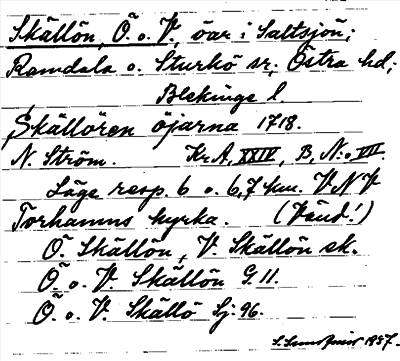 Skällön, Ö. o. V., öar i Saltsjön;
Ramdala o. Sturkö sr; Östra hd;
Blekinge l.
Skällören öjarna 1718.
N. Ström. Kr.A, XXIV, B, N:o VIII.
Läge resp. 6 o. 6,7 km. V N V
Torhamns kyrka. (Vänd!)
Ö. Skällön, V. Skällön sk.
Ö. o. V. Skällön G. 11.
Ö. o. V. Skällö Sj: 96.
1937.